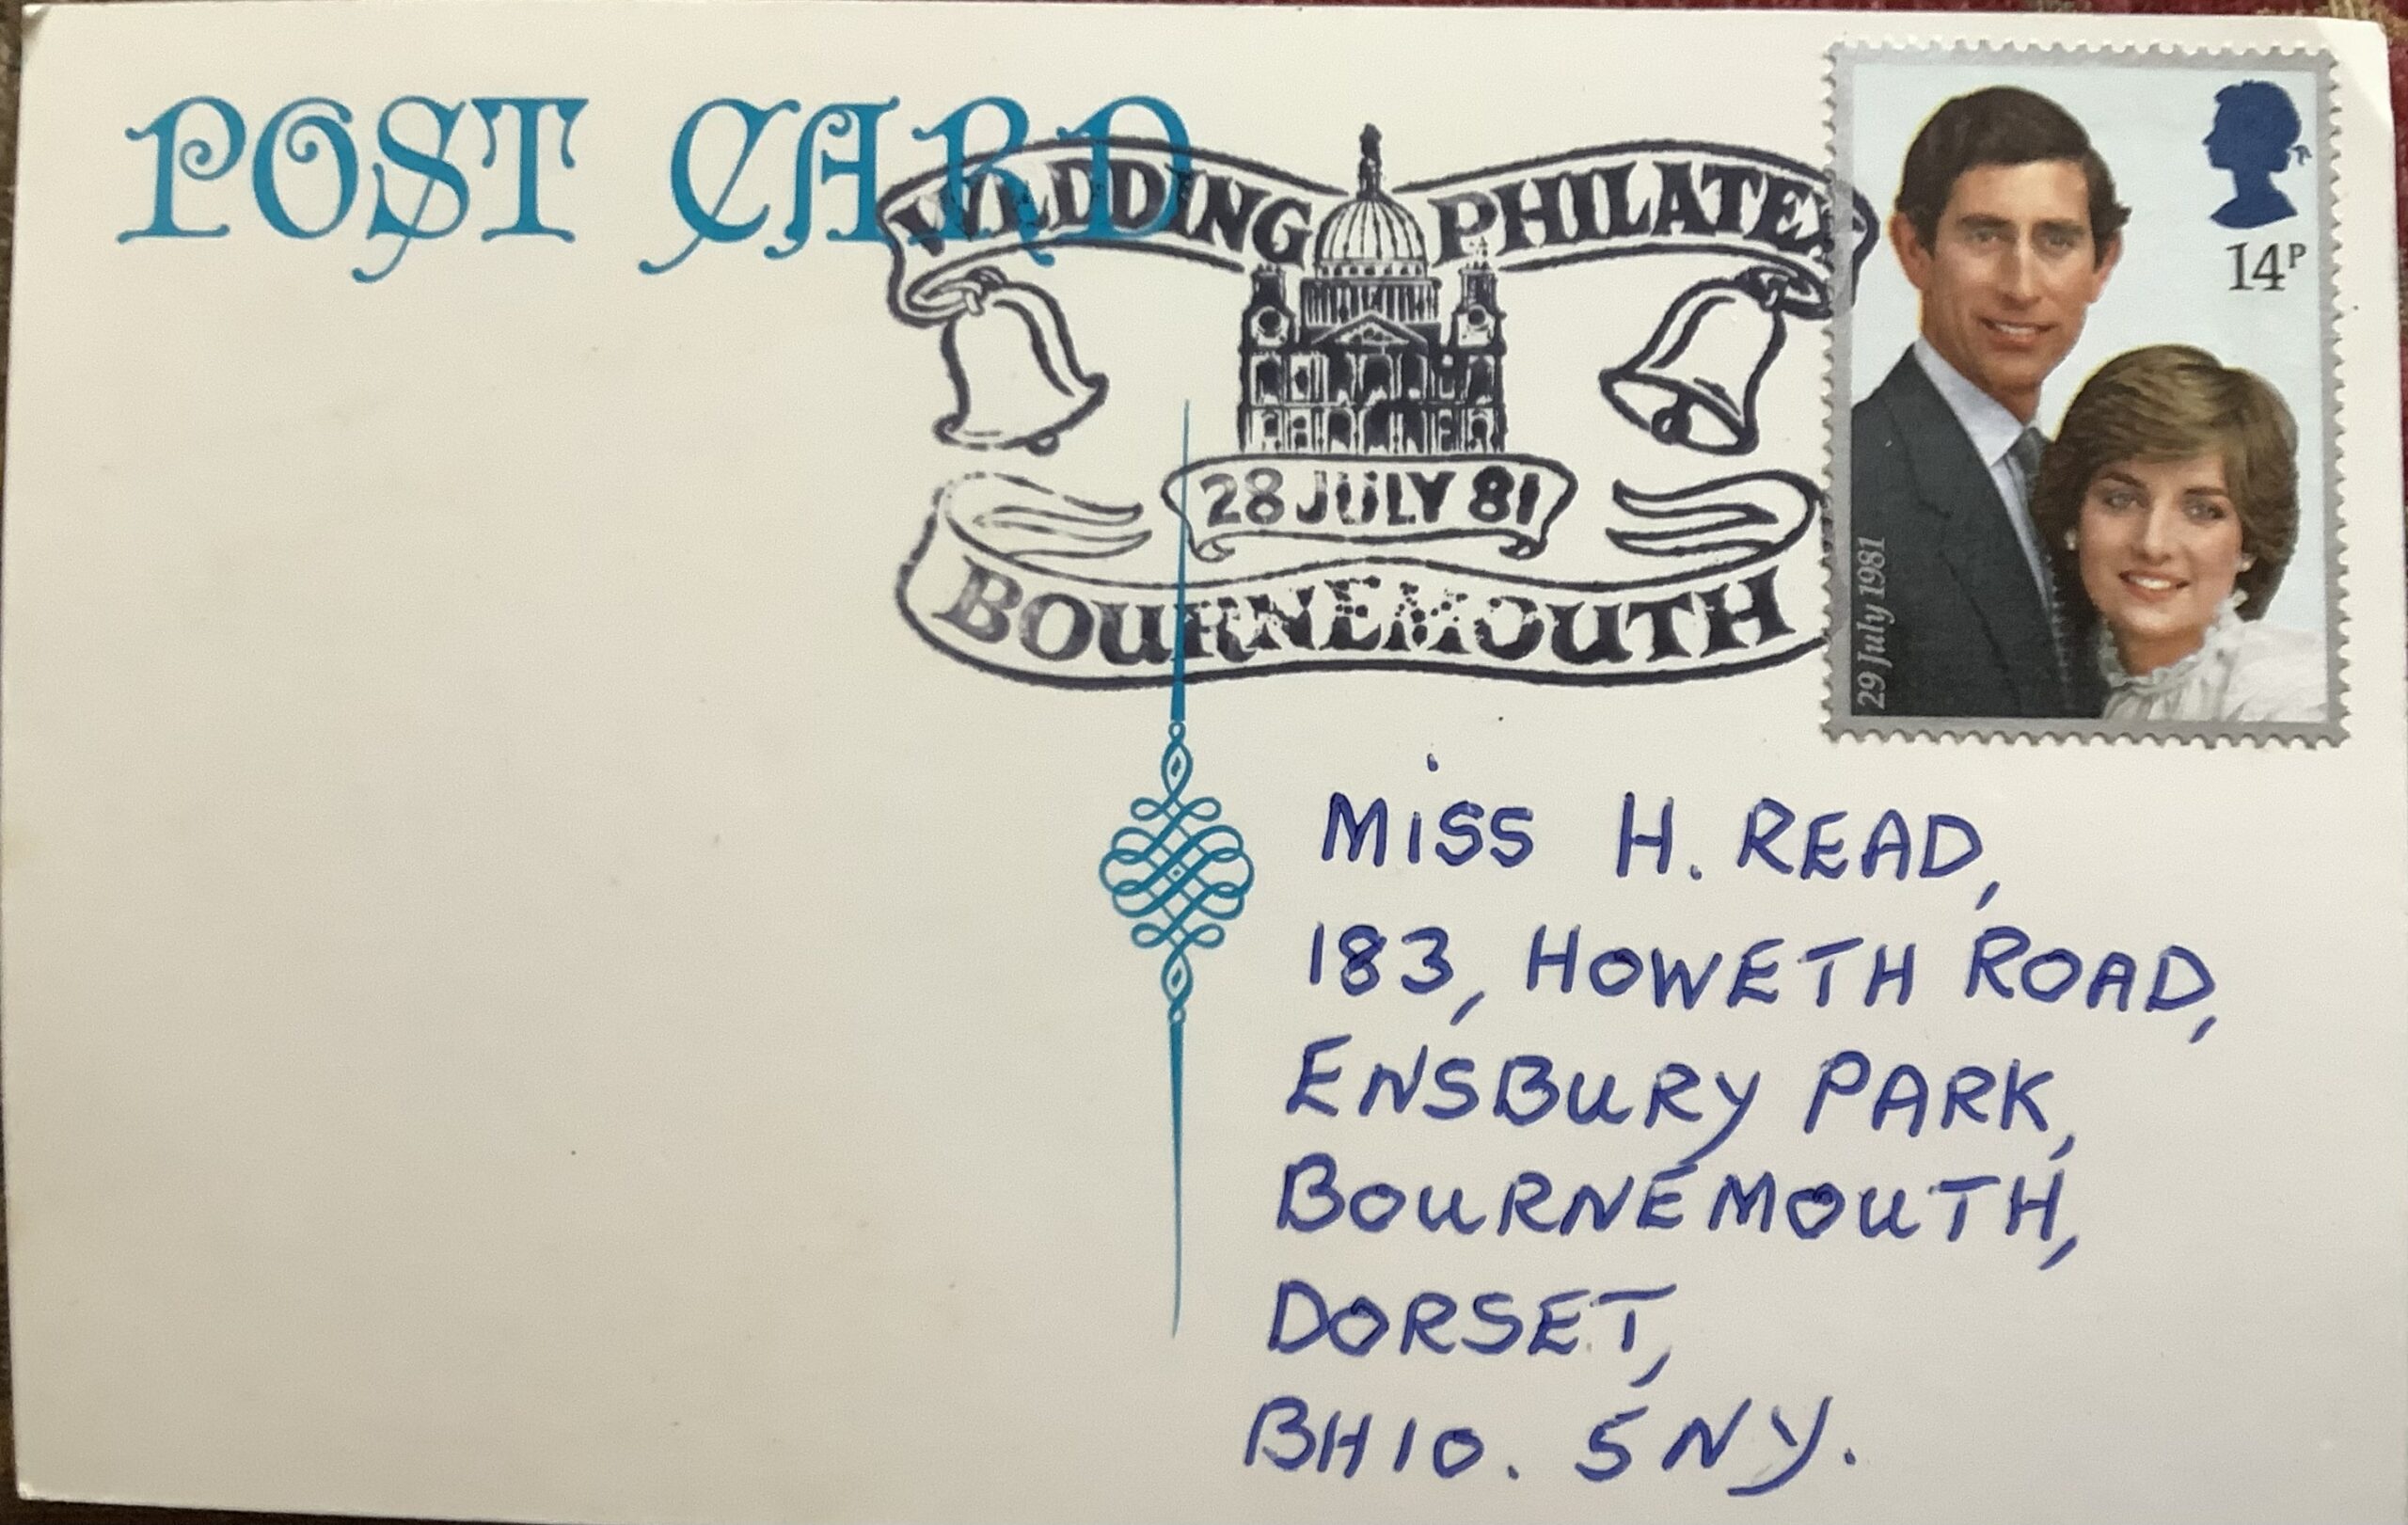 POST CARD
WEDDING PHILATEX
28 JULY 81
BOURNEMOUTH
14P
29 July 1981
MiSS H. READ,
183, HOWETH ROAD,
ENSBURY PARK,
BOURNEMOUTH,
DORSET,
BH10. 5NY.